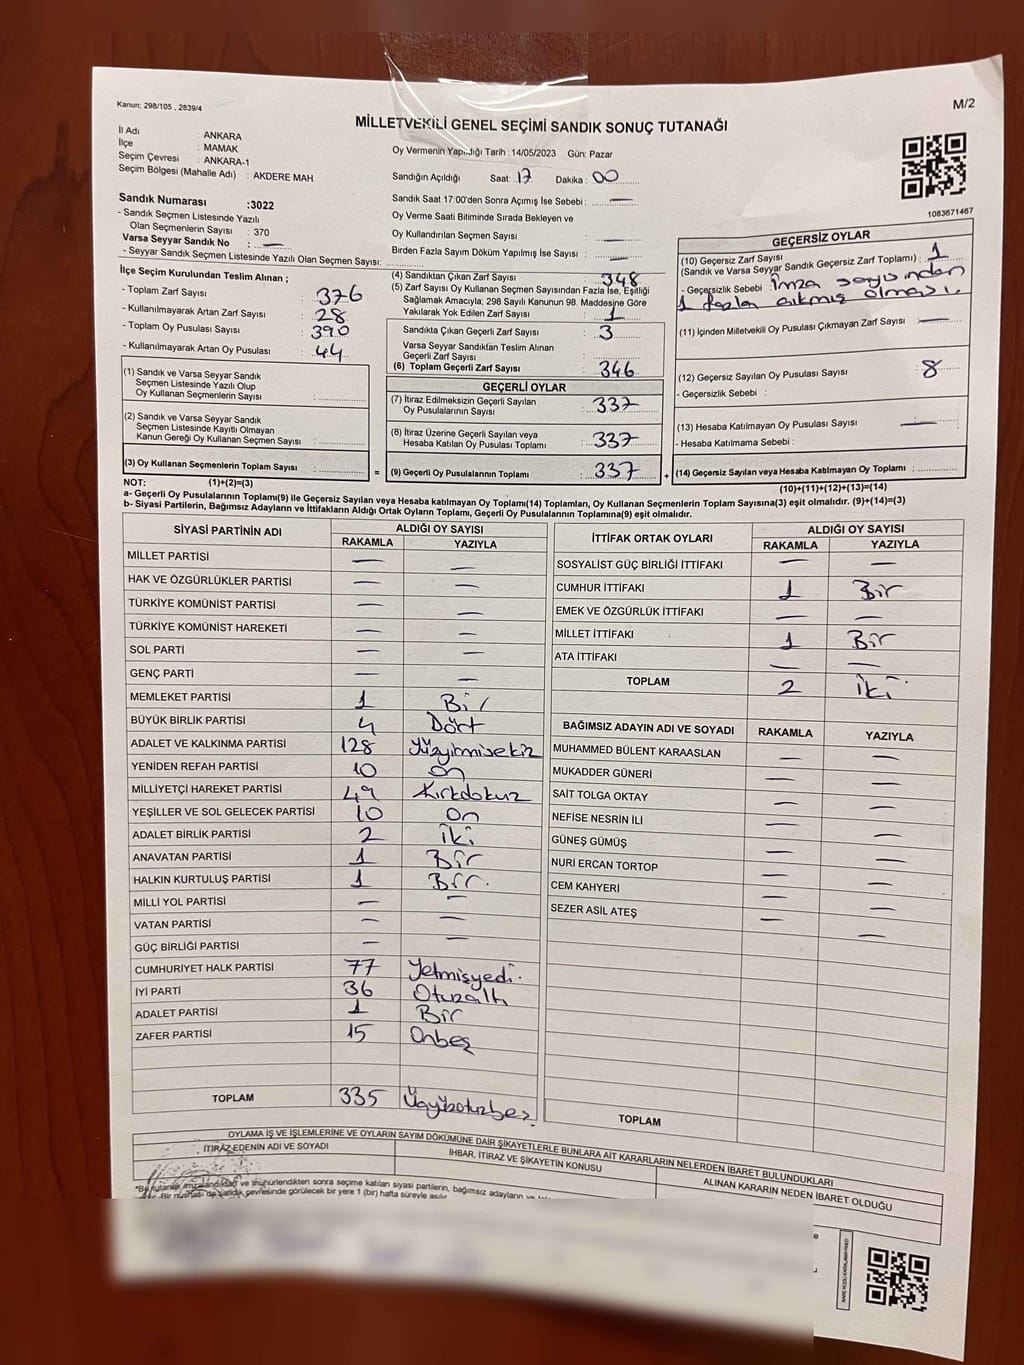 Kanun: 298/105 , 2839/4
M/2
MİLLETVEKİLİ GENEL SEÇİMİ SANDIK SONUÇ TUTANAĞI
İl Adı : ANKARA
İlçe : MAMAK
Seçim Çevresi : ANKARA-1
Seçim Bölgesi (Mahalle Adı) : AKDERE MAH
Oy Vermenin Yapıldığı Tarih :14/05/2023 Gün: Pazar
Sandığın Açıldığı Saat: 17 Dakika : 00
Sandık Saat 17:00'den Sonra Açılmış İse Sebebi : —
Oy Verme Saati Bitiminde Sırada Bekleyen ve
Oy Kullandırılan Seçmen Sayısı : —
Birden Fazla Sayım Döküm Yapılmış İse Sayısı : —
1083671467
Sandık Numarası :3022
- Sandık Seçmen Listesinde Yazılı
Olan Seçmenlerin Sayısı : 370
Varsa Seyyar Sandık No : —
- Seyyar Sandık Seçmen Listesinde Yazılı Olan Seçmen Sayısı:
İlçe Seçim Kurulundan Teslim Alınan ;
- Toplam Zarf Sayısı : 376
- Kullanılmayarak Artan Zarf Sayısı : 28
- Toplam Oy Pusulası Sayısı : 390
- Kullanılmayarak Artan Oy Pusulası : 44
(1) Sandık ve Varsa Seyyar Sandık
Seçmen Listesinde Yazılı Olup
Oy Kullanan Seçmenlerin Sayısı :
(2) Sandık ve Varsa Seyyar Sandık
Seçmen Listesinde Kayıtlı Olmayan
Kanun Gereği Oy Kullanan Seçmen Sayısı :
(3) Oy Kullanan Seçmenlerin Toplam Sayısı :
(1)+(2)=(3)
(4) Sandıktan Çıkan Zarf Sayısı : 348
(5) Zarf Sayısı Oy Kullanan Seçmen Sayısından Fazla İse, Eşitliği
Sağlamak Amacıyla; 298 Sayılı Kanunun 98. Maddesine Göre
Yakılarak Yok Edilen Zarf Sayısı : 1
Sandıkta Çıkan Geçerli Zarf Sayısı : 3
Varsa Seyyar Sandıktan Teslim Alınan
Geçerli Zarf Sayısı :
(6) Toplam Geçerli Zarf Sayısı : 346
GEÇERLİ OYLAR
(7) İtiraz Edilmeksizin Geçerli Sayılan
Oy Pusulalarının Sayısı : 337
(8) İtiraz Üzerine Geçerli Sayılan veya
Hesaba Katılan Oy Pusulası Toplamı : 337
= (9) Geçerli Oy Pusulalarının Toplamı : 337 +
GEÇERSİZ OYLAR
(10) Geçersiz Zarf Sayısı
(Sandık ve Varsa Seyyar Sandık Geçersiz Zarf Toplamı) : 1
- Geçersizlik Sebebi : İmza sayısından
1 fazla çıkmış olması.
(11) İçinden Milletvekili Oy Pusulası Çıkmayan Zarf Sayısı : —
(12) Geçersiz Sayılan Oy Pusulası Sayısı : 8
- Geçersizlik Sebebi :
(13) Hesaba Katılmayan Oy Pusulası Sayısı : —
- Hesaba Katılmama Sebebi :
(14) Geçersiz Sayılan veya Hesaba Katılmayan Oy Toplamı :
(10)+(11)+(12)+(13)=(14)
NOT:
a- Geçerli Oy Pusulalarının Toplamı(9) ile Geçersiz Sayılan veya Hesaba katılmayan Oy Toplamı(14) Toplamları, Oy Kullanan Seçmenlerin Toplam Sayısına(3) eşit olmalıdır. (9)+(14)=(3)
b- Siyasi Partilerin, Bağımsız Adayların ve İttifakların Aldığı Ortak Oyların Toplamı, Geçerli Oy Pusulalarının Toplamına(9) eşit olmalıdır.
SİYASİ PARTİNİN ADI ALDIĞI OY SAYISI
RAKAMLA YAZIYLA
MİLLET PARTİSİ — —
HAK VE ÖZGÜRLÜKLER PARTİSİ — —
TÜRKİYE KOMÜNİST PARTİSİ — —
TÜRKİYE KOMÜNİST HAREKETİ — —
SOL PARTİ — —
GENÇ PARTİ — —
MEMLEKET PARTİSİ 1 Bir
BÜYÜK BİRLİK PARTİSİ 4 Dört
ADALET VE KALKINMA PARTİSİ 128 Yüzyirmisekiz
YENİDEN REFAH PARTİSİ 10 on
MİLLİYETÇİ HAREKET PARTİSİ 49 Kırkdokuz
YEŞİLLER VE SOL GELECEK PARTİSİ 10 On
ADALET BİRLİK PARTİSİ 2 iki
ANAVATAN PARTİSİ 1 Bir
HALKIN KURTULUŞ PARTİSİ 1 Bir.
MİLLİ YOL PARTİSİ — —
VATAN PARTİSİ — —
GÜÇ BİRLİĞİ PARTİSİ — —
CUMHURİYET HALK PARTİSİ 77 Yetmişyedi.
İYİ PARTİ 36 Otuzaltı
ADALET PARTİSİ 1 Bir
ZAFER PARTİSİ 15 Onbeş
TOPLAM 335 Üçyüzotuzbeş
İTTİFAK ORTAK OYLARI ALDIĞI OY SAYISI
RAKAMLA YAZIYLA
SOSYALİST GÜÇ BİRLİĞİ İTTİFAKI — —
CUMHUR İTTİFAKI 1 Bir
EMEK VE ÖZGÜRLÜK İTTİFAKI — —
MİLLET İTTİFAKI 1 Bir
ATA İTTİFAKI — —
TOPLAM 2 İki
BAĞIMSIZ ADAYIN ADI VE SOYADI RAKAMLA YAZIYLA
MUHAMMED BÜLENT KARAASLAN — —
MUKADDER GÜNERİ — —
SAİT TOLGA OKTAY — —
NEFİSE NESRİN İLİ — —
GÜNEŞ GÜMÜŞ — —
NURİ ERCAN TORTOP — —
CEM KAHYERİ — —
SEZER ASİL ATEŞ — —
TOPLAM
OYLAMA İŞ VE İŞLEMLERİNE VE OYLARIN SAYIM DÖKÜMÜNE DAİR ŞİKAYETLERLE BUNLARA AİT KARARLARIN NELERDEN İBARET BULUNDUKLARI
İTİRAZ EDENİN ADI VE SOYADI
İHBAR, İTİRAZ VE ŞİKAYETİN KONUSU
ALINAN KARARIN NEDEN İBARET OLDUĞU
*Bu tutanak imzalandıktan ve mühürlendikten sonra seçime katılan siyasi partilerin, bağımsız adayların ve
Bir nüshası da sandık çevresinde görülecek bir yere 1 (bir) hafta süreyle asılır.